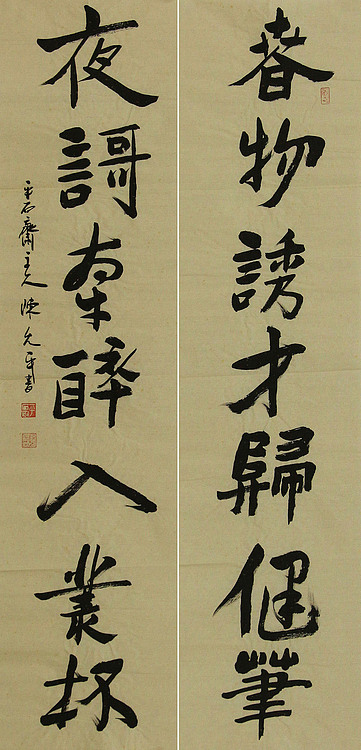 春物誘才歸健筆
夜謌牽醉入叢杯
平石齋主人陳允平書